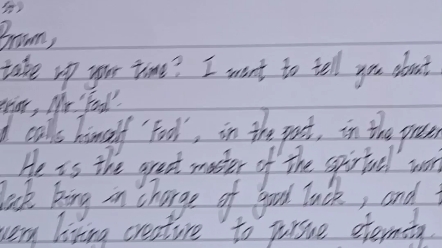 Brown,
take up your time? I want to tell you about
Mr. "Fool".
calls himself "Fool", in the past, in the presen
He is the great master of the spirtuel wor
lack king in charge of good luck, and t
very living creature to pursue eternity.